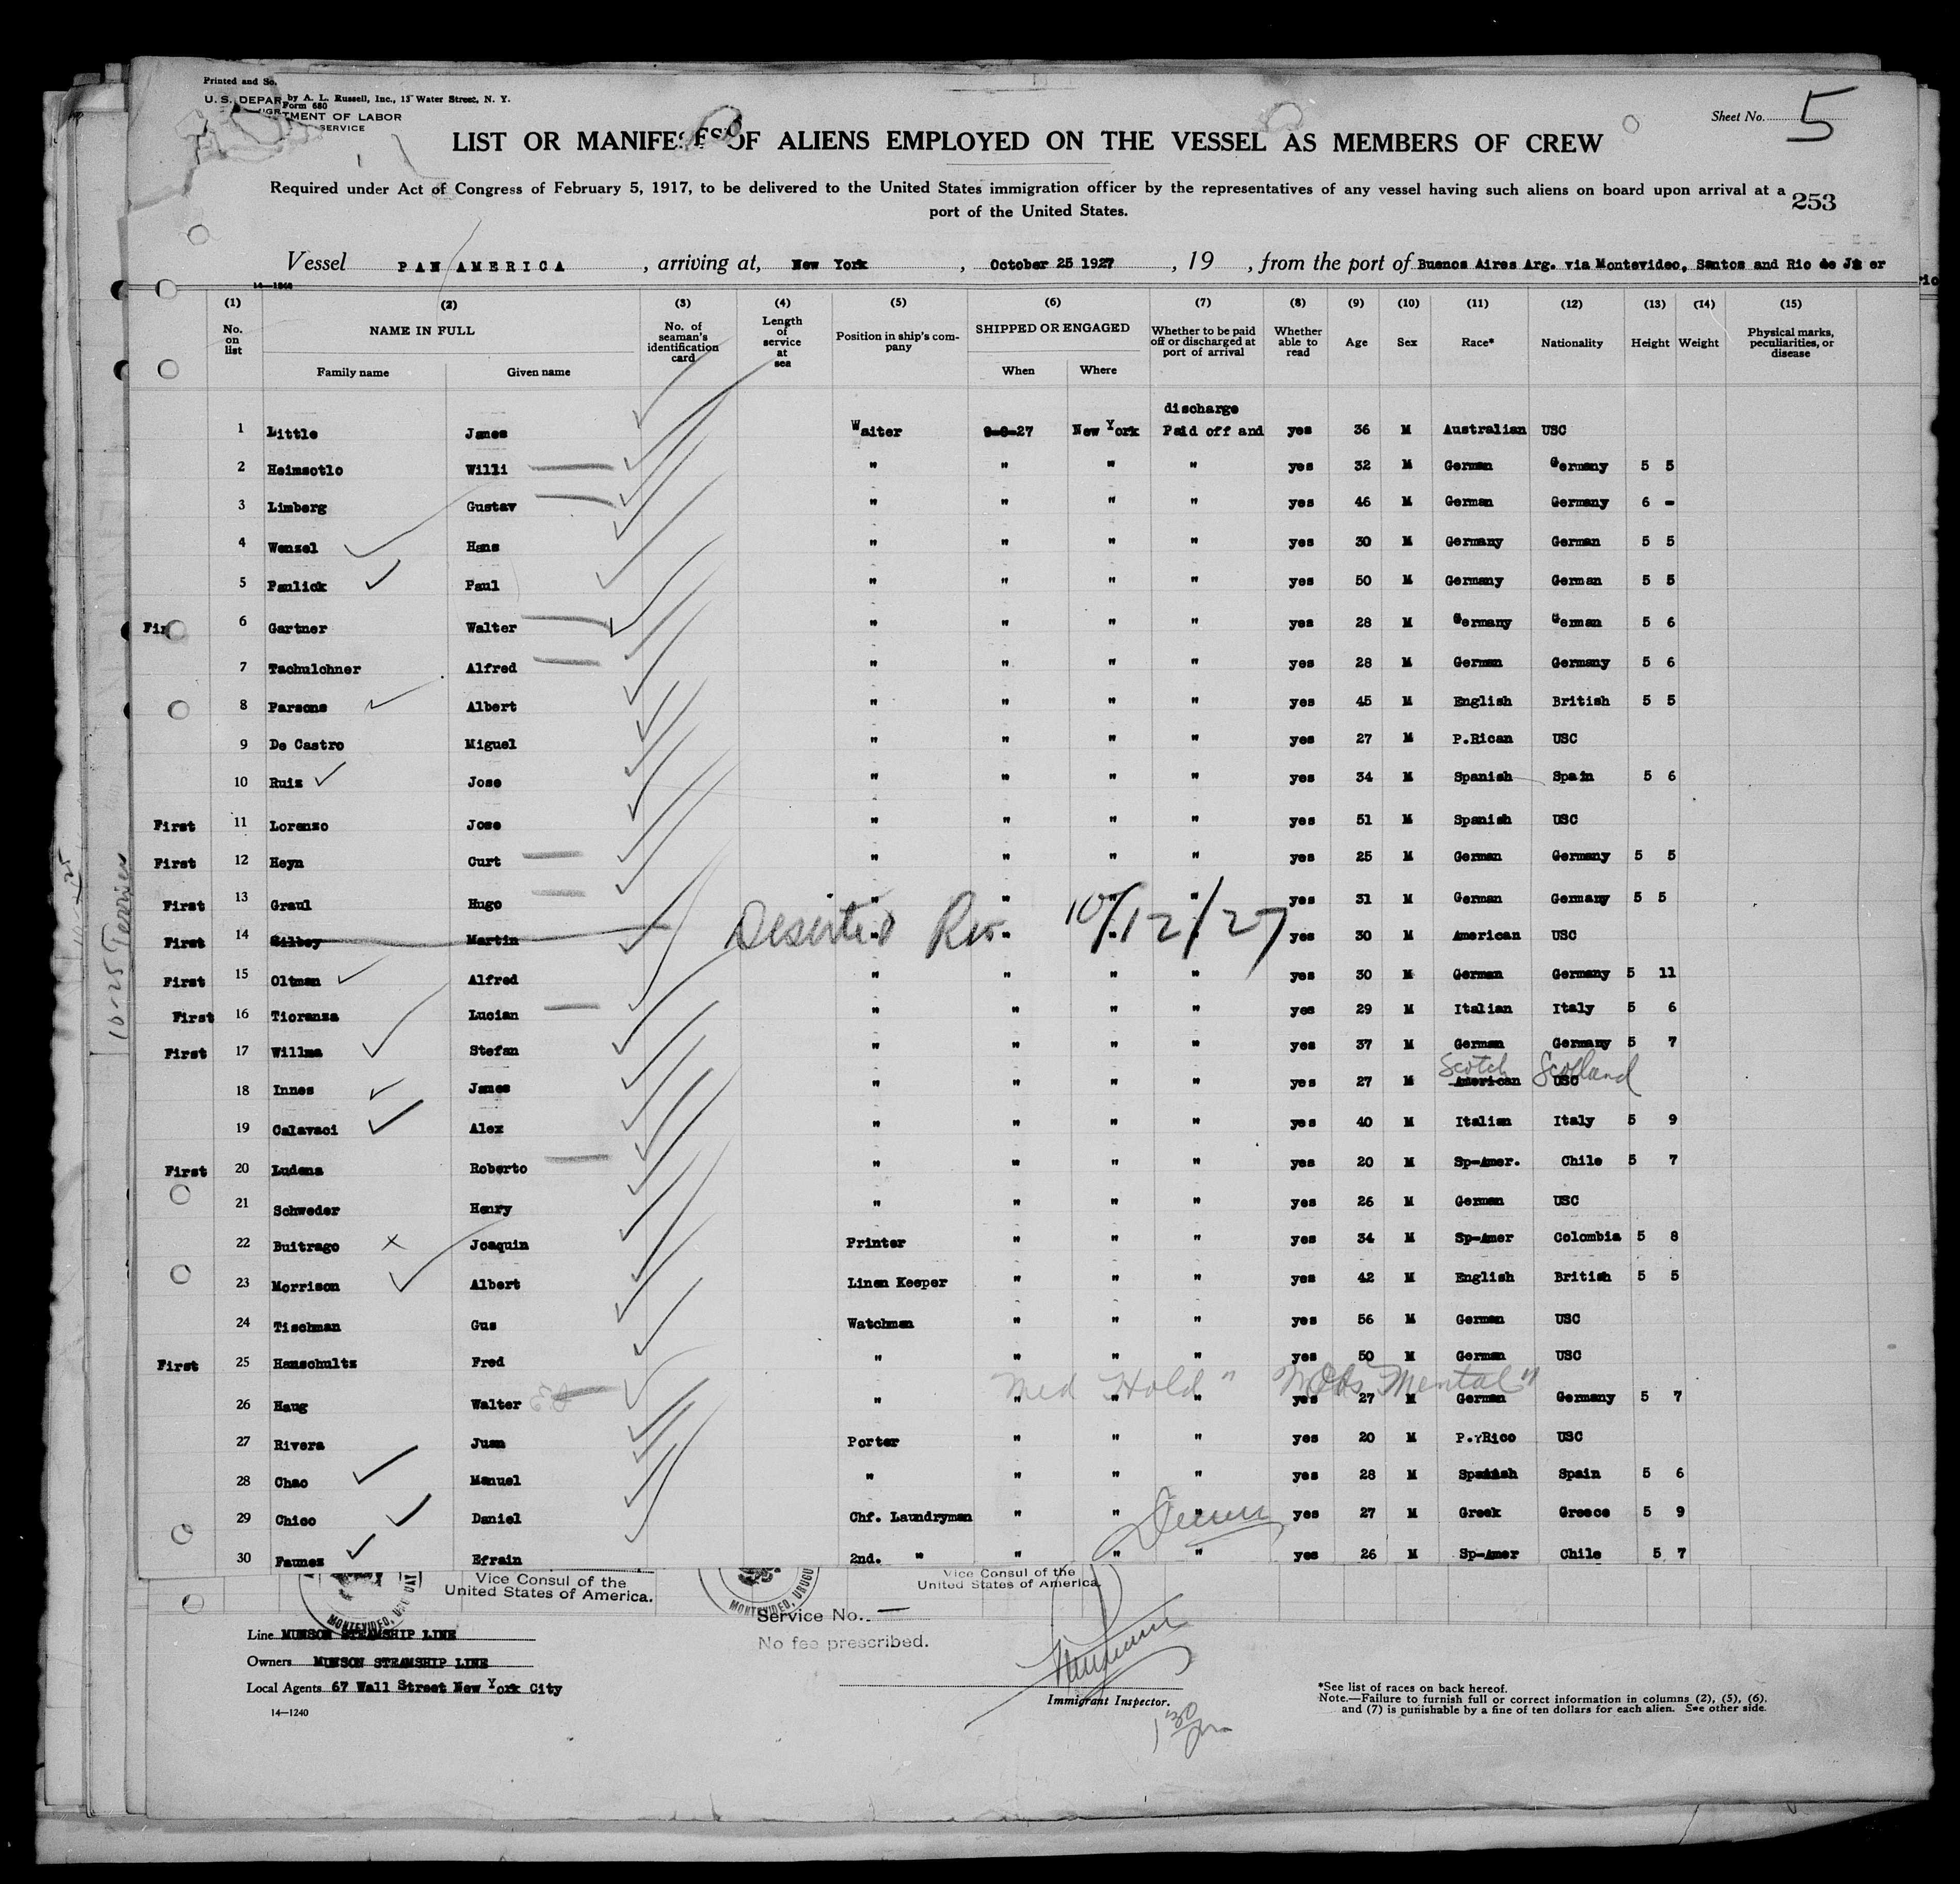 Printed and So.
by A. L. Russell, Inc., 15 Water Street, N. Y.
U. S. DEPAR
Form 680
TMENT OF LABOR
SERVICE
Sheet No. 5
LIST OR MANIFEST OF ALIENS EMPLOYED ON THE VESSEL AS MEMBERS OF CREW
Required under Act of Congress of February 5, 1917, to be delivered to the United States immigration officer by the representatives of any vessel having such aliens on board upon arrival at a
port of the United States.
253
Vessel PAN AMERICA , arriving at, New York , October 25 1927 , 19 , from the port of Buenos Aires Arg. via Montevideo, Santos and Rio de Ja er
14—1240
(1) (2) (3) (4) (5) (6) (7) (8) (9) (10) (11) (12) (13) (14) (15)
No. on list NAME IN FULL Family name Given name No. of seaman's identification card Length of service at sea Position in ship's company SHIPPED OR ENGAGED When Where Whether to be paid off or discharged at port of arrival Whether able to read Age Sex Race* Nationality Height Weight Physical marks, peculiarities, or disease
discharge
1 Little James Waiter 9-8-27 New York Paid off and yes 36 M Australian USC
2 Heimsotlo Willi " " " " yes 32 M German Germany 5 5
3 Limberg Gustav " " " " yes 46 M German Germany 6 -
4 Wenzel Hans " " " " yes 30 M Germany German 5 5
5 Paulick Paul " " " " yes 50 M Germany German 5 5
Fir 6 Gartner Walter " " " " yes 28 M Germany German 5 6
7 Tschulchner Alfred " " " " yes 28 M German Germany 5 6
8 Parsons Albert " " " " yes 45 M English British 5 5
9 De Castro Miguel " " " " yes 27 M P.Rican USC
10 Ruiz Jose " " " " yes 34 M Spanish Spain 5 6
First 11 Lorenzo Jose " " " " yes 51 M Spanish USC
First 12 Heyn Curt " " " " yes 25 M German Germany 5 5
First 13 Graul Hugo " " " " yes 31 M German Germany 5 5
First 14 Silbey Martin Deserted Rio 10/12/27 " " " " yes 30 M American USC
First 15 Oltman Alfred " " " " yes 30 M German Germany 5 11
First 16 Tioranza Lucian " " " " yes 29 M Italian Italy 5 6
First 17 Willma Stefan " " " " yes 37 M German Germany 5 7
Scotch Scotland
18 Innes James " " " " yes 27 M American USC
19 Calavaci Alex " " " " yes 40 M Italian Italy 5 9
First 20 Ludena Roberto " " " " yes 20 M Sp-Amer. Chile 5 7
21 Schweder Henry " " " " yes 26 M German USC
22 Buitrago x Joaquin Printer " " " yes 34 M Sp-Amer Colombia 5 8
23 Morrison Albert Linen Keeper " " " yes 42 M English British 5 5
24 Tischman Gus Watchman " " " yes 56 M German USC
First 25 Hanschultz Fred " " " " yes 50 M German USC
Med Hold " Obs Mental "
26 Haug Walter " " " " yes 27 M German Germany 5 7
27 Rivera Juan Porter " " " yes 20 M P.Rico USC
28 Chao Manuel " " " " yes 28 M Spanish Spain 5 6
29 Chico Daniel Chf. Laundryman " " " yes 27 M Greek Greece 5 9
30 Faunez Efrain 2nd. " " " " yes 26 M Sp-Amer Chile 5 7
10-25
Vice Consul of the
United States of America.
MONTEVIDEO, URUGUAY
Vice Consul of the
United States of America.
MONTEVIDEO, URUGU
Service No. —
No fee prescribed.
Line MUNSON STEAMSHIP LINE
Owners MUNSON STEAMSHIP LINE
Local Agents 67 Wall Street New York City
14—1240
Immigrant Inspector.
1 30 pm
*See list of races on back hereof.
Note.—Failure to furnish full or correct information in columns (2), (5), (6),
and (7) is punishable by a fine of ten dollars for each alien. See other side.